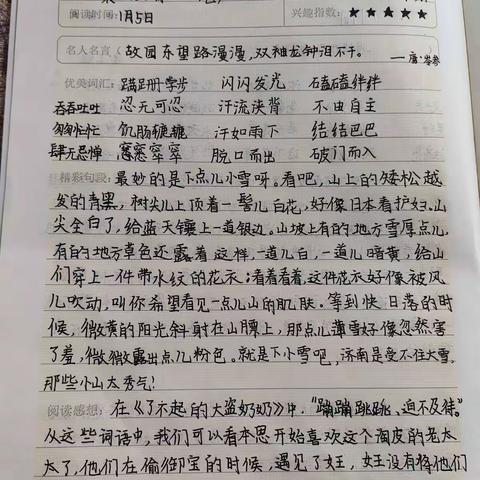 阅读时间: 1月5日 兴趣指数: ★★★★★
名人名言 ( 故园东望路漫漫,双袖龙钟泪不干。 ——唐·岑参
优美词汇: 蹒跚学步 闪闪发光 磕磕绊绊
吞吞吐吐 忍无可忍 汗流浃背 不由自主
匆匆忙忙 饥肠辘辘 汗如雨下 结结巴巴
肆无忌惮 窸窸窣窣 脱口而出 破门而入
精彩句段: 最妙的是下点儿小雪呀。看吧,山上的矮松越
发的青黑,树尖儿上顶着一髻儿白花,好像日本看护妇。山
尖全白了,给蓝天镶上一道银边。山坡上有的地方雪厚点儿,
有的地方草色还露着这样,一道儿白,一道儿暗黄,给山
们穿上一件带水纹的花衣;看着看着,这件花衣好像被风
儿吹动,叫你希望看见一点儿山的肌肤。等到快日落的时
候,微黄的阳光斜射在山腰上,那点儿薄雪好像忽然害
了羞,微微露出点儿粉色。就是下小雪吧,济南是受不住大雪,
那些小山太秀气!
阅读感想: 在《了不起的大盗奶奶》中,"蹦蹦跳跳、迫不及待。"
从这些词语中,我们可以看本思开始喜欢这个淘皮的老太
太了,他们在偷御宝的时候,遇见了女王,女王没有将他们